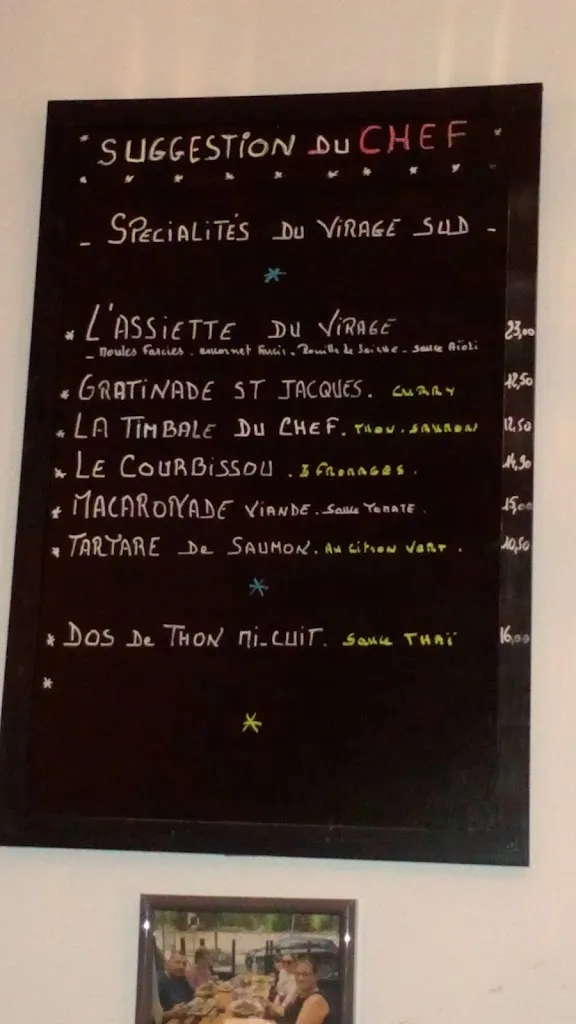 * SUGGESTION DU CHEF *
- SPECIALITÉS DU VIRAGE SUD -
* L'ASSIETTE DU VIRAGE 23,00
- Moules Farcies. encornet Farci. Rouille de Seiche - sauce Aïoli
* GRATINADE ST JACQUES. CURRY 12,50
* LA TIMBALE DU CHEF. THON. SAUMON 12,50
* LE COURBISSOU. 3 FROMAGES. 14,90
* MACARONADE VIANDE. Sauce TOMATE. 15,00
* TARTARE De SAUMON. Au Citron VERT. 10,50
* DOS De THON Mi-CUIT. Sauce THAÏ 16,00